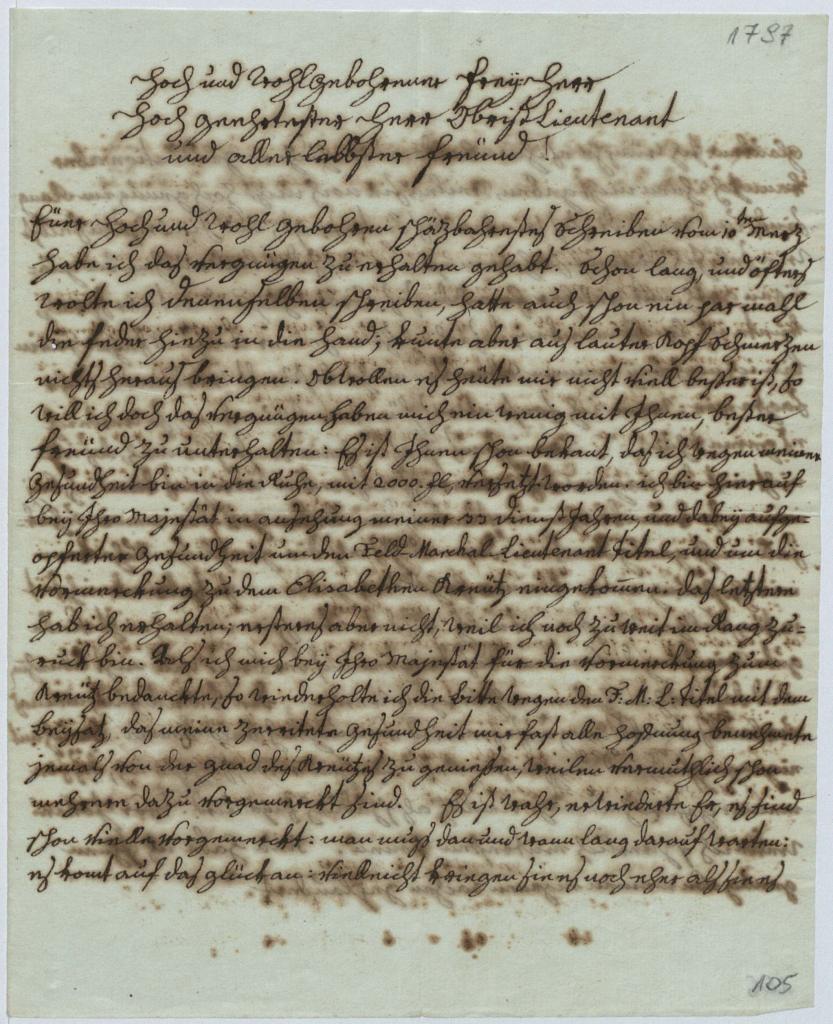 1787
Hoch und Wohlgebohrener Freyherr
Hoch geehrtester Herr Obrist Lieutenant
und aller liebster freünd!
Eüer Hoch und Wohl gebohren schäzbahrestes Schreiben vom 10ten Merz
habe ich das vergnügen zu erhalten gehabt. Schon lang, und öfters
wolte ich denenselben schreiben, hatte auch schon ein par mahl
die feder hiezu in die hand; kunte aber aus lauter Kopf Schmerzen
nichts heraus bringen. Obwollen es heüte mir nicht viell besser ist, so
will ich doch das vergnügen haben mich ein wenig mit Ihnen, bester
freünd zu unterhalten: Es ist Ihnen schon bekant, das ich wegen meiner
gesundheit bin in die Ruhe, mit 2000. fl. versetzt worden. ich bin hierauf
bey Ihro Majestät in ansehung meiner 33 dienst Jahren, und dabey aufge-
opferter gesundheit um den Feld Marchal Lieutenant titel, und um die
vormerckung zu dem Elisabethen Kreütz eingekom̄en. das letztere
hab ich erhalten; ersteres aber nicht, weil ich noch zu weit im Rang zu=
ruck bin. Als ich mich bey Ihro Majestät für die vormerckung zum
Kreütz bedanckte, so wiederholte ich die bitte wegen dem F: M: L: titel mit dem
beysatz, das meine zerritete gesundheit mir fast alle hofnung benehmete
jemals von der gnad des Kreützes zu geniessen, weilen vermuthlich schon
mehrere dazu vorgemerckt sind. Es ist wahr, erwiederte Er, es sind
schon vielle vorgemerckt: man mugs dan und wann lang darauf warten:
es komt auf das glück an: vielleicht kriegen sie es noch eher als sie es
105